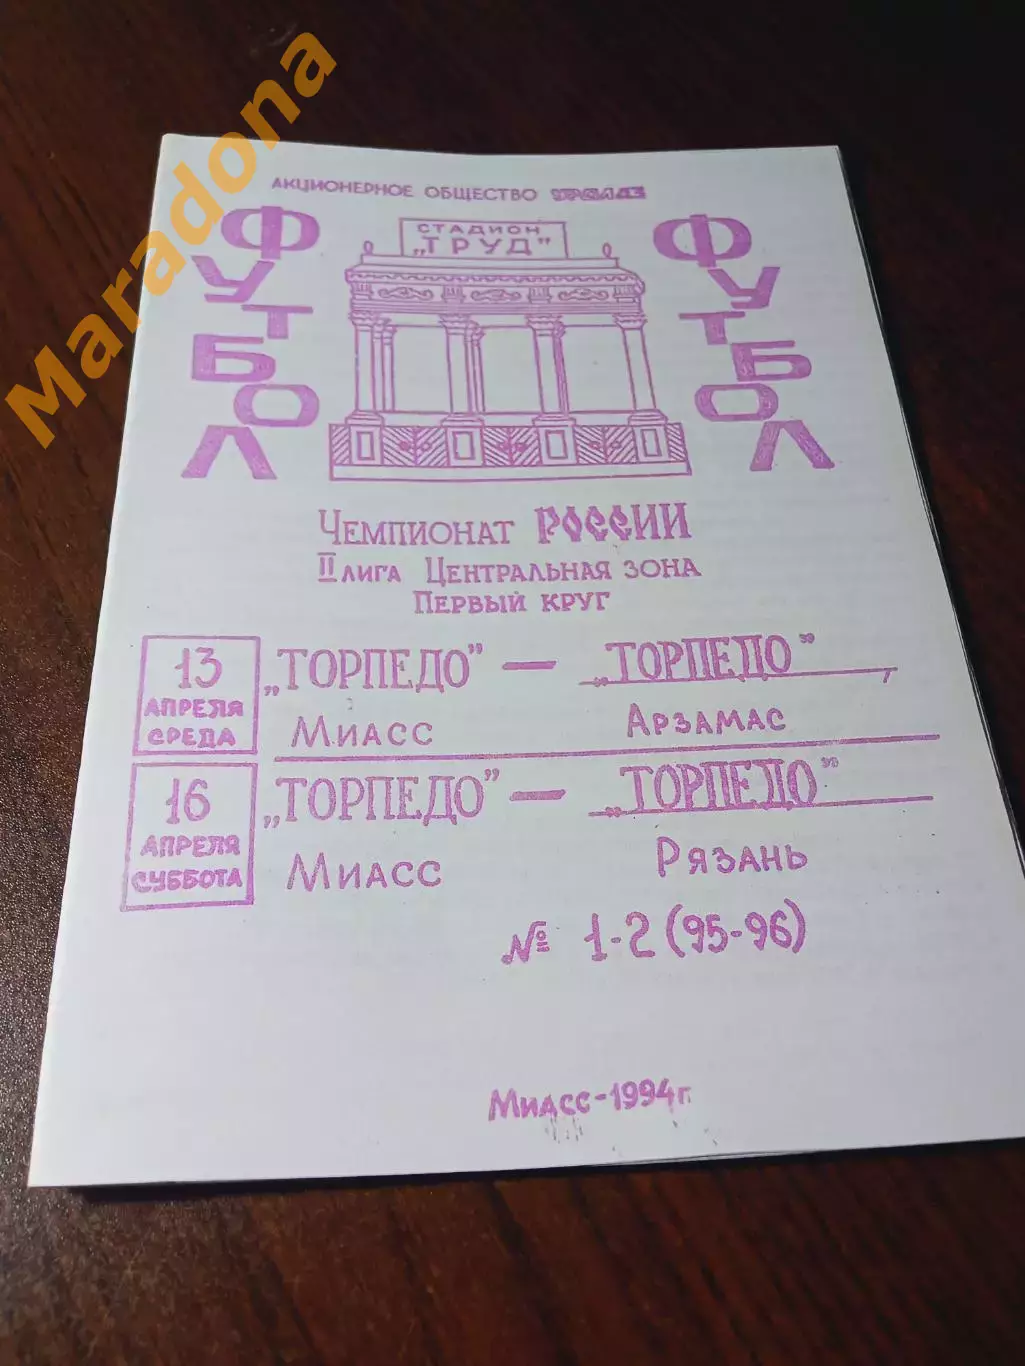 Maradona
АКЦИОНЕРНОЕ ОБЩЕСТВО УРАЛАЗ
СТАДИОН
„ТРУД"
ФУТБОЛ
ФУТБОЛ
ЧЕМПИОНАТ РОССИИ
II ЛИГА ЦЕНТРАЛЬНАЯ ЗОНА
ПЕРВЫЙ КРУГ
13
АПРЕЛЯ
СРЕДА
„ТОРПЕДО" — „ТОРПЕДО"
МИАСС АРЗАМАС
16
АПРЕЛЯ
СУББОТА
„ТОРПЕДО" — „ТОРПЕДО"
МИАСС РЯЗАНЬ
№ 1-2 (95-96)
МИАСС-1994г.